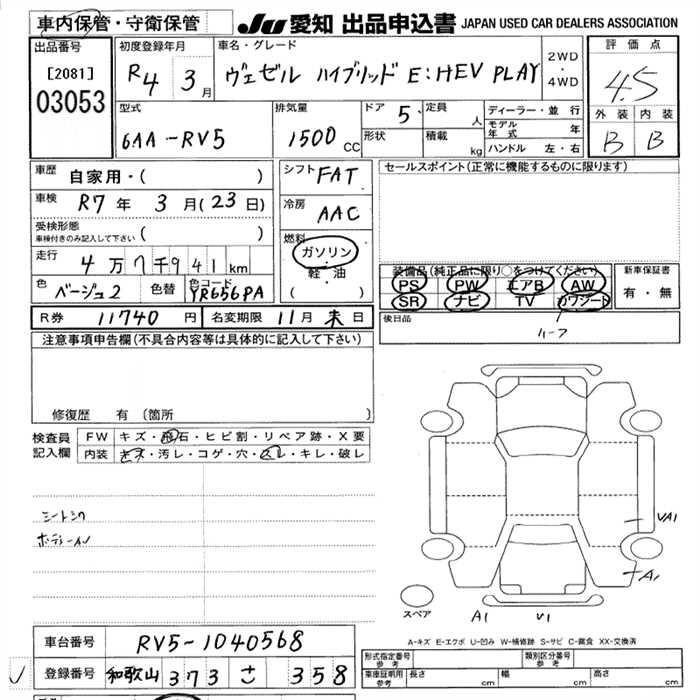 車内保管・守衛保管
JU 愛知 出品申込書 JAPAN USED CAR DEALERS ASSOCIATION
出品番号
[2081]
03053
初度登録年月
R4 3月
車名・グレード
ヴェゼル ハイブリッド E:HEV PLAY
2WD
・
4WD
評価点
4.5
外装 内装
B B
型式
6AA-RV5
排気量
1500 CC
ドア 5
形状
定員 人
積載 kg
ディーラー・並行
モデル年式 年
ハンドル 左・右
車歴
自家用・( )
車検
R7年 3月(23日)
受検形態
車検付きのみ記入して下さい ( )
走行
4万7千941km
色
ベージュ2
色替
色コード
YR656PA
シフト
FAT
冷房
AAC
燃料
ガソリン
・
軽・油
( )
セールスポイント(正常に機能するものに限ります)
装備品(純正品に限り○をつけてください)
PS PW エアB AW
SR ナビ TV カワシート
新車保証書
有・無
後日品
ルーフ
R券 11740円
名変期限 11月末日
注意事項申告欄(不具合内容等は具体的に記入して下さい)
修復歴 有 〔箇所 〕
検査員
記入欄
FW キズ・飛石・ヒビ割・リペア跡・X要
内装 キズ・汚レ・コゲ・穴・スレ・キレ・破レ
シートシワ
VA1
A1
スペア
A1 V1
A-キズ E-エクボ U-凹み W-補修跡 S-サビ C-腐食 XX-交換済
車台番号
RV5-1040568
登録番号
和歌山 373 さ 358
形式指定番号
参考
類別区分番号
参考
車庫証明用
参考
長さ cm
幅 cm
高さ cm